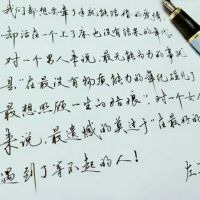 我们都想要牵了手就能结婚的爱情
却活在一个上了床也没有结果的年代
对一个男人来说，最无能为力的事就
是“在最没有物质能力的年纪碰见了
最想照顾一生的姑娘”，对一个女人
来说，最遗憾的莫过于“在最好的
遇到了等不起的人！